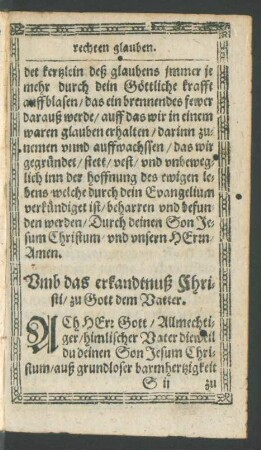 rechten glauben.
det kertzlein deß glaubens jmmer je
mehr durch dein Göttliche krafft
auffblasen / das ein brennendes fewer
darauß werde / auff das wir in einem
waren glauben erhalten / darinn zu-
nemen vnnd auffwachssen / das wir
gegründet / stett / vest / vnd vnbeweg-
lich inn der hoffnung des ewigen le-
bens welche durch dein Evangelium
verkündiget ist / beharren vnd befun
den werden / Durch deinen Son Je-
sum Christum / vnd vnsern HErrn /
Amen.
Vmb das erkandtnuß Chri
sti / zu Gott dem Vatter.
ACh HErr Gott / Allmechti
ger / himlischer Vater dieweil
du deinen Son Jesum Chri
stum / auß grundloser barmhertzigkeit
S ij zu